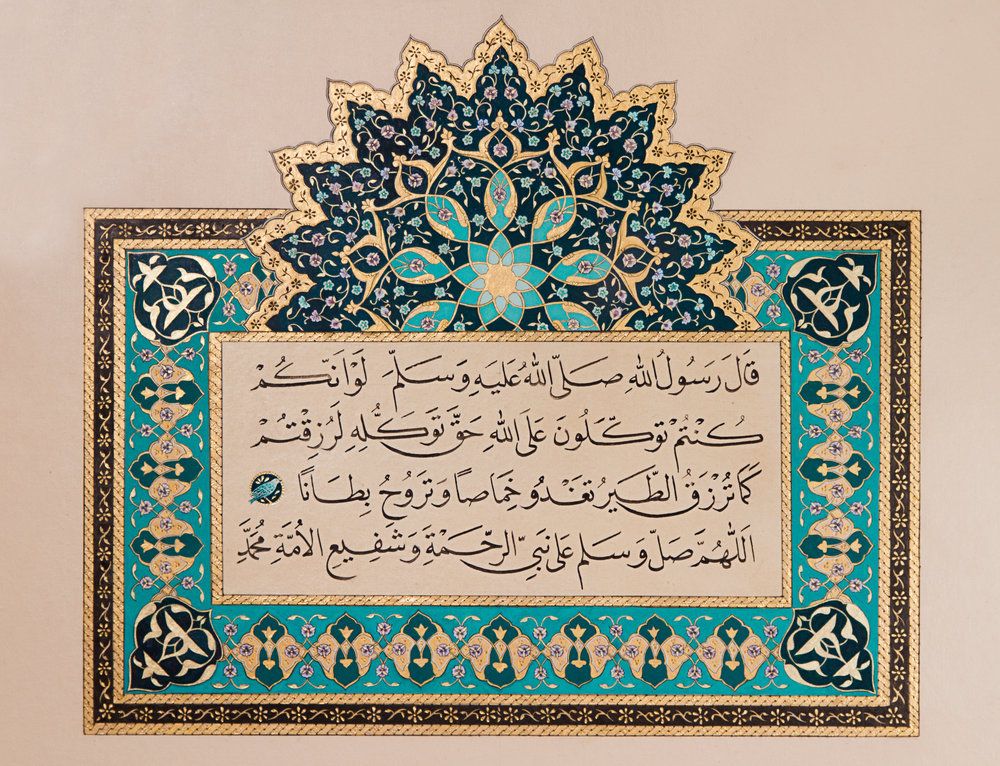 قَالَ رَسُولُ اللهِ صَلَّى اللهُ عَلَيْهِ وَسَلَّمَ لَوْ أَنَّكُمْ
كُنْتُمْ تَوَكَّلُونَ عَلَى اللهِ حَقَّ تَوَكُّلِهِ لَرُزِقْتُمْ
كَمَا تُرْزَقُ الطَّيْرُ تَغْدُو خِمَاصًا وَتَرُوحُ بِطَانًا
اَللّٰهُمَّ صَلِّ وَسَلِّمْ عَلَى نَبِيِّ الرَّحْمَةِ وَشَفِيعِ الأُمَّةِ مُحَمَّدٍ